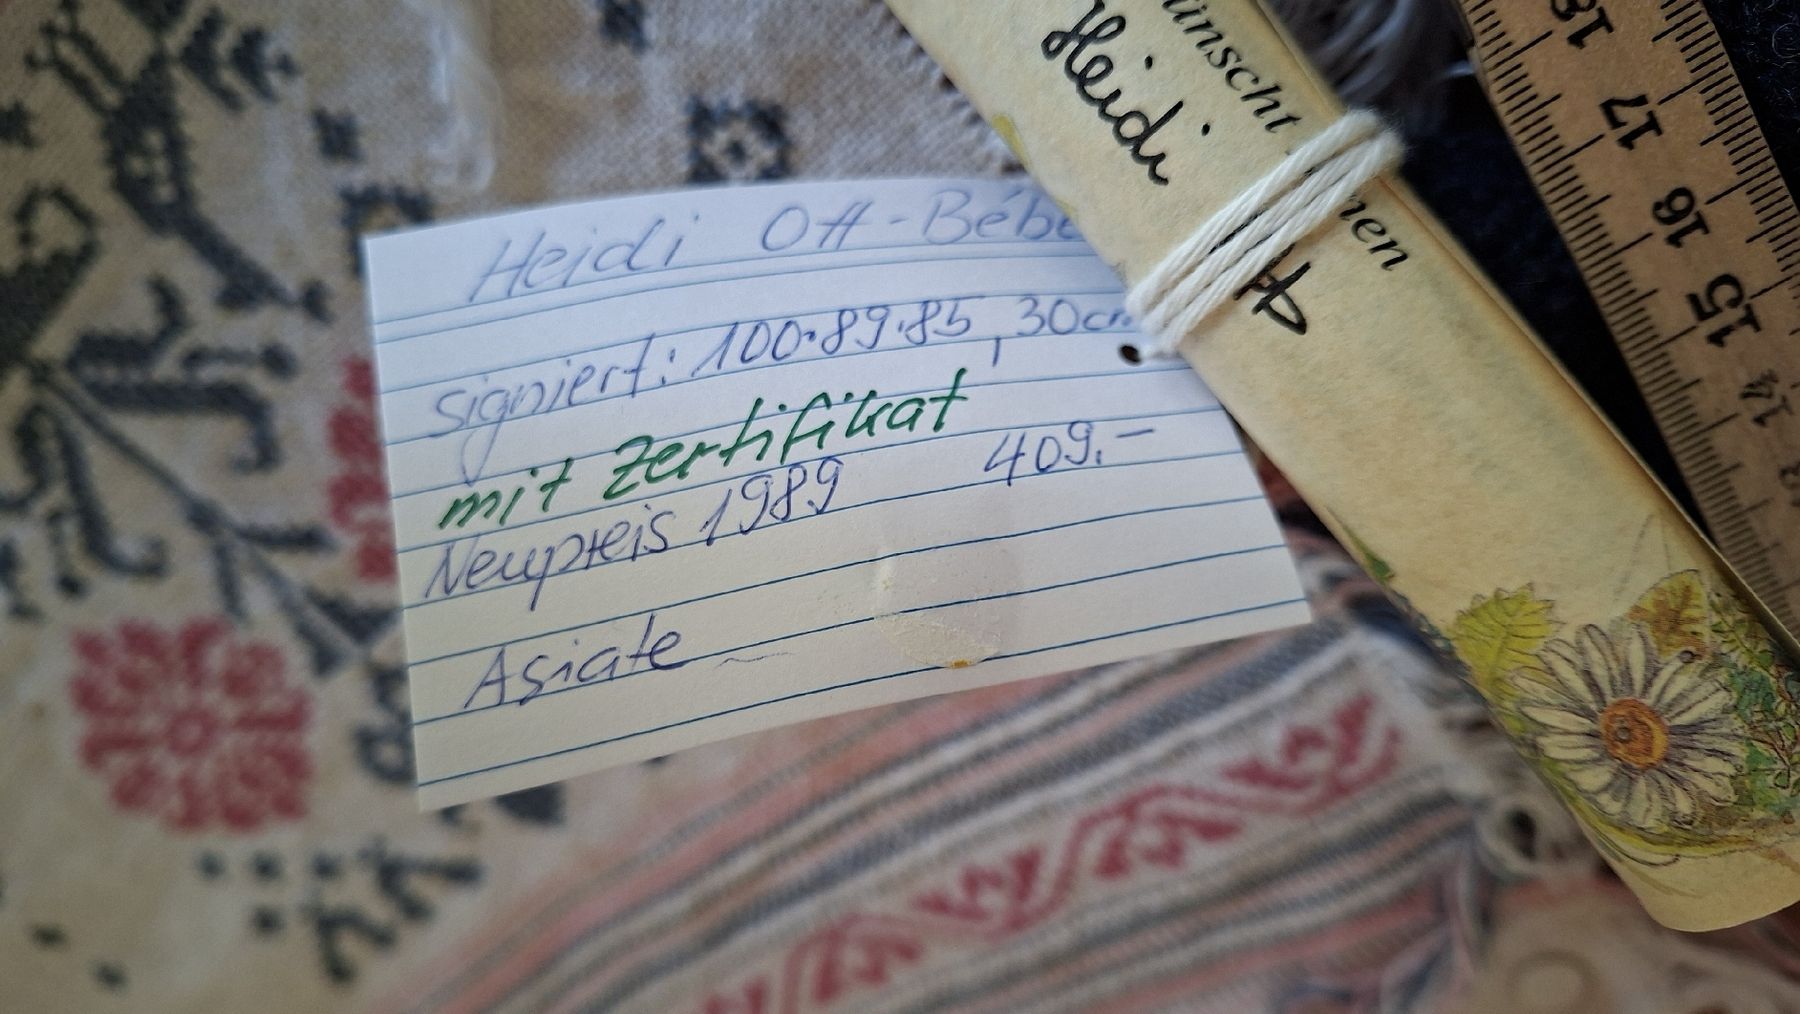 Heidi Ott-Bébé
signiert: 100.89.85, 30cm
mit Zertifikat
Neupreis 1989 409.-
Asiate
ünscht
Heidi
nen
18
17
16
15
14
13